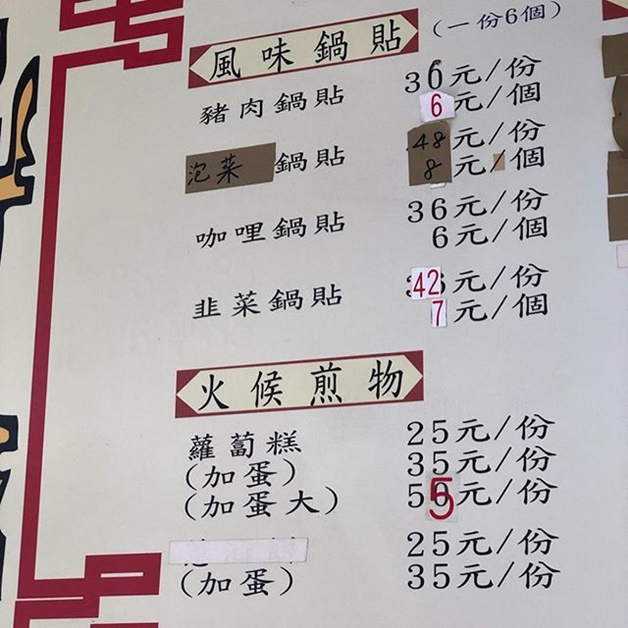 風味鍋貼 (一份6個)
豬肉鍋貼 36元/份
6元/個
泡菜鍋貼 48元/份
8元/個
咖哩鍋貼 36元/份
6元/個
韭菜鍋貼 42元/份
7元/個
火候煎物
蘿蔔糕 25元/份
(加蛋) 35元/份
(加蛋大) 55元/份
25元/份
(加蛋) 35元/份